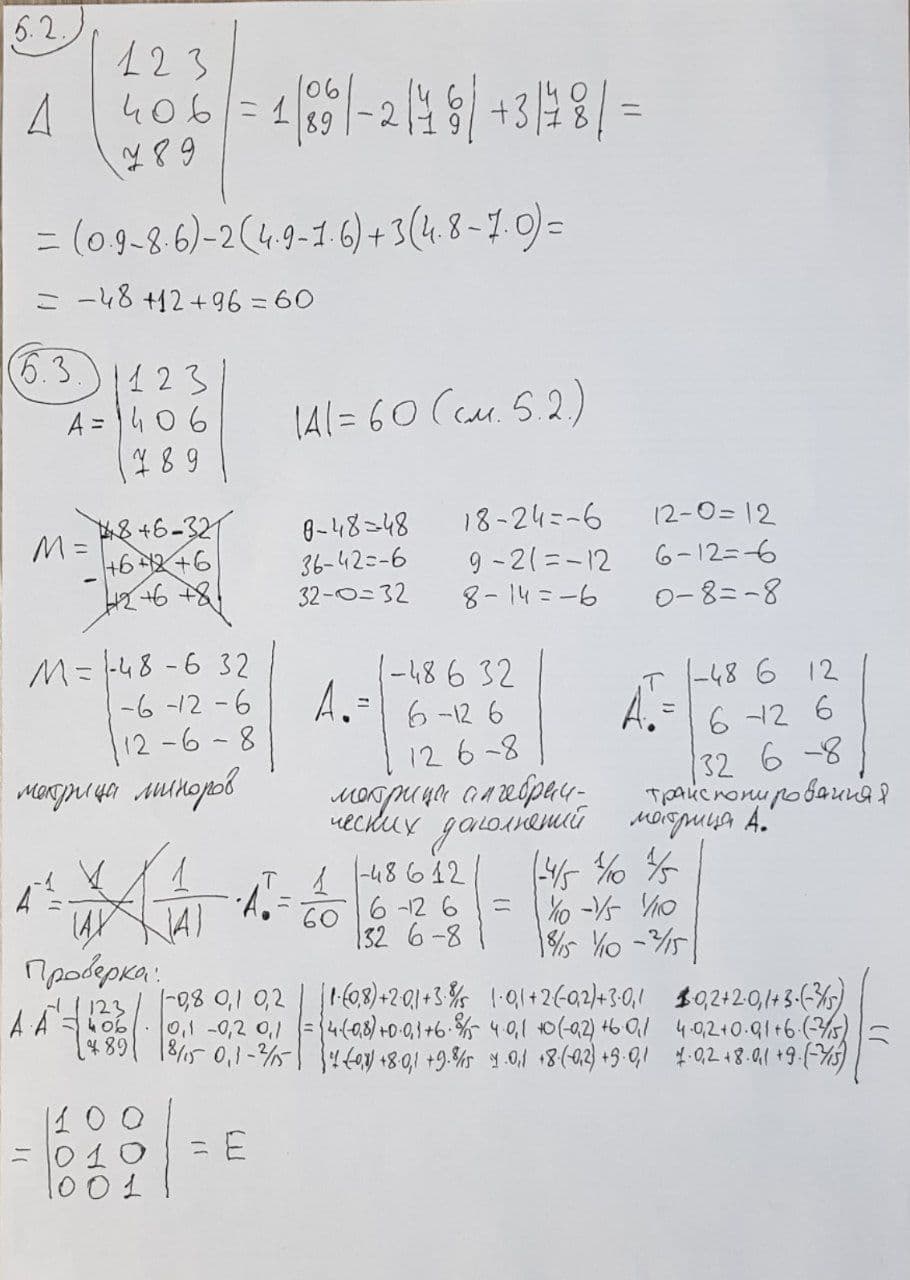 5.2.
Δ |1 2 3
4 0 6
7 8 9| = 1 |0 6
8 9| - 2 |4 6
7 9| + 3 |4 0
7 8| =
= (0·9-8·6)-2(4·9-7·6)+3(4·8-7·0)=
= -48+12+96=60
5.3.
A = |1 2 3
4 0 6
7 8 9| |A|=60 (см. 5.2.)
M = 48+6-32
+6+12+6
-12+6+8
0-48=48 18-24=-6 12-0=12
36-42=-6 9-21=-12 6-12=-6
32-0=32 8-14=-6 0-8=-8
M = |-48 -6 32
-6 -12 -6
12 -6 -8|
матрица миноров
A• = |-48 6 32
6 -12 6
12 6 -8|
матрица алгебраи-
ческих дополнений
A•ᵀ = |-48 6 12
6 -12 6
32 6 -8|
транспонированная
матрица A•
A⁻¹ = 1/|A| 1/|A| · A•ᵀ = 1/60 |-48 6 12
6 -12 6
32 6 -8| = |-4/5 1/10 1/5
1/10 -1/5 1/10
8/15 1/10 -2/15|
Проверка:
A·A⁻¹ = |1 2 3
4 0 6
7 8 9| · |-0,8 0,1 0,2
0,1 -0,2 0,1
8/15 0,1 -2/15| = |1·(-0,8)+2·0,1+3·8/15 1·0,1+2(-0,2)+3·0,1 1·0,2+2·0,1+3·(-2/15)
4·(-0,8)+0·0,1+6·8/15 4·0,1+0(-0,2)+6·0,1 4·0,2+0·0,1+6·(-2/15)
7·(-0,8)+8·0,1+9·8/15 7·0,1+8·(-0,2)+9·0,1 7·0,2+8·0,1+9·(-2/15)| =
= |1 0 0
0 1 0
0 0 1| = E